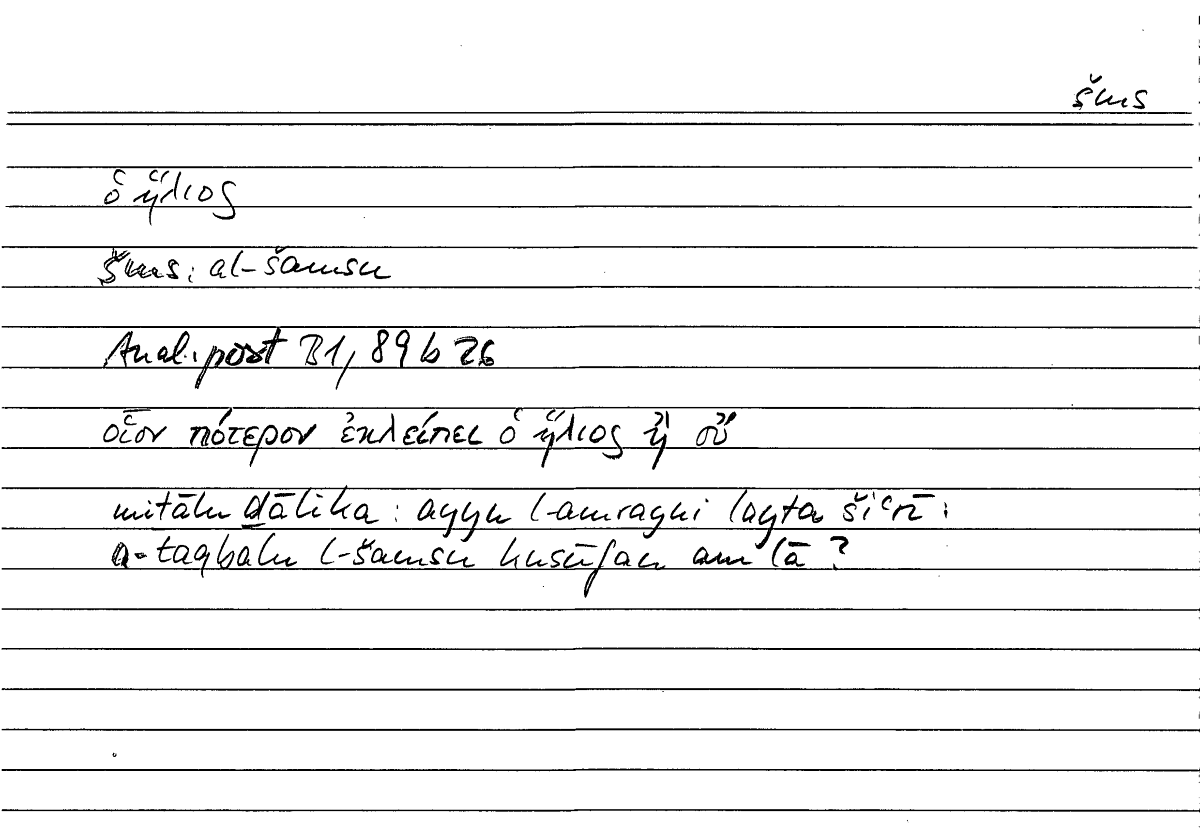 šms
ὁ ἥλιος
šms: al-šamsu
Anal. post B1, 89 b 26
οἷον πότερον ἐκλείπει ὁ ἥλιος ἢ οὔ
mitālu ḏālika: ayyu l-amrayni layta šiʿrī:
a-taqbalu l-šamsu kusūfan am lā?